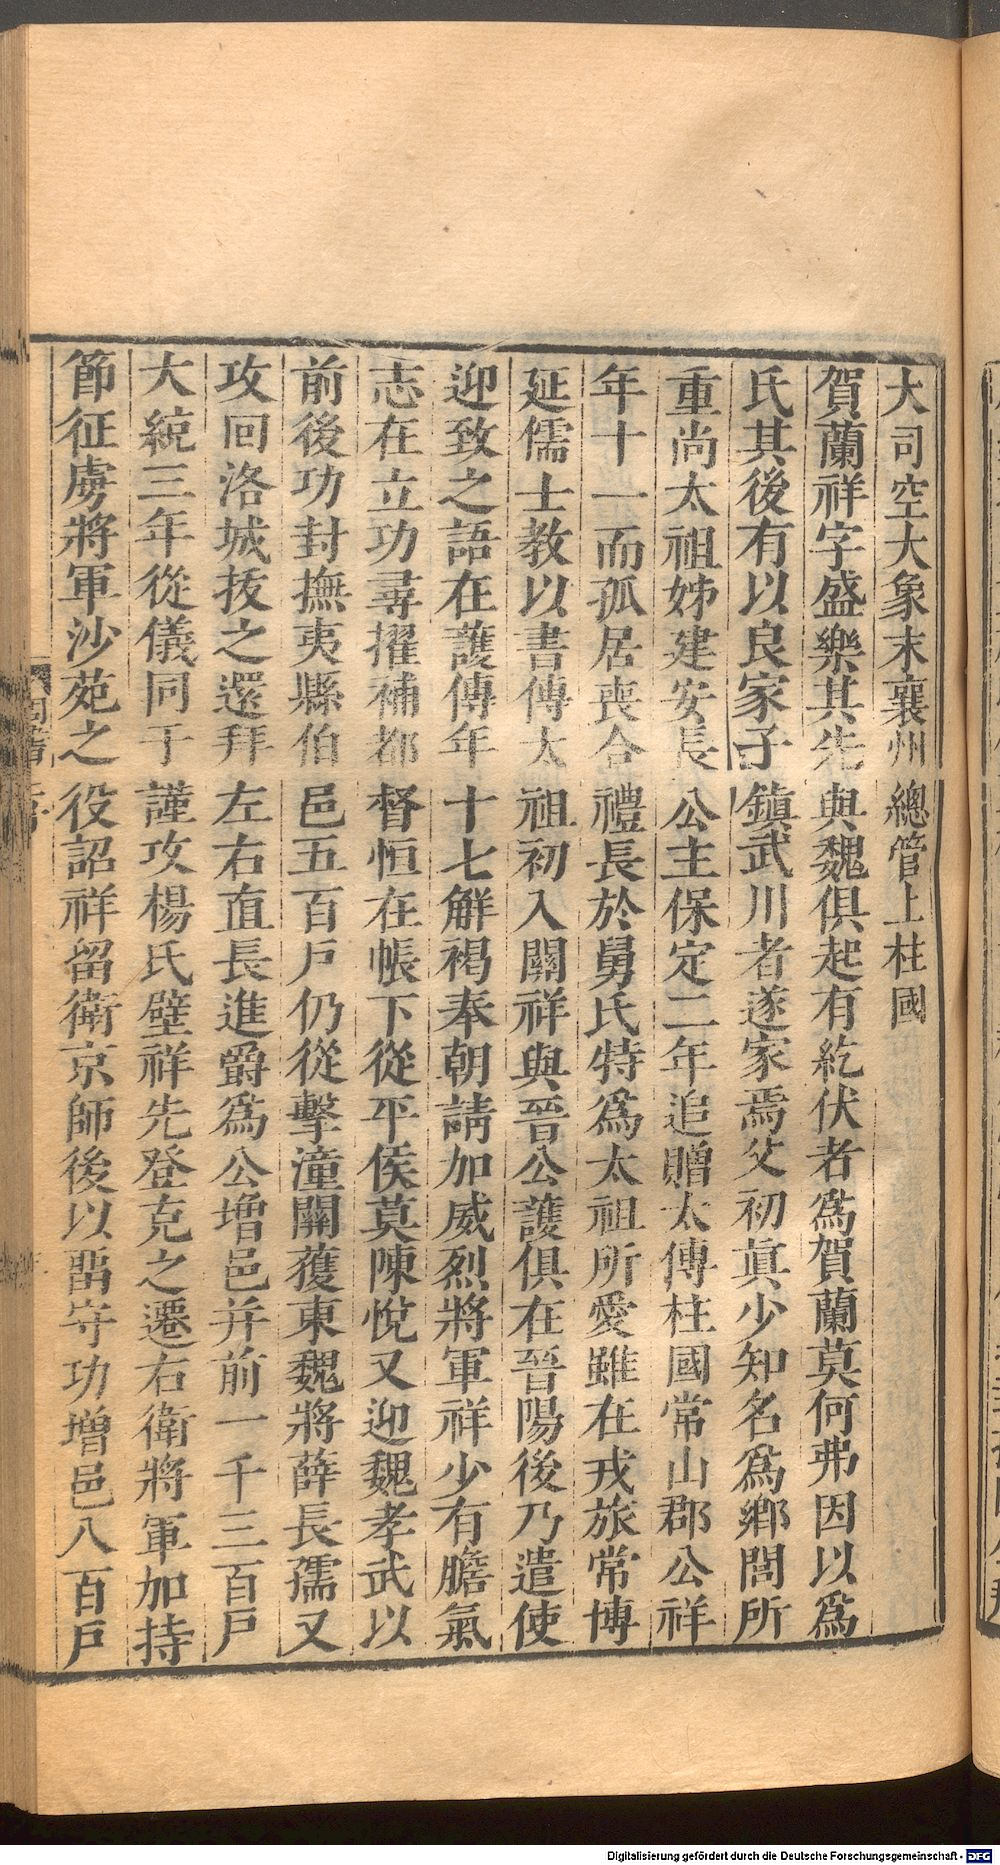 大司空大象末襄州總管上柱國
賀蘭祥字盛樂其先與魏俱起有紇伏者爲賀蘭莫何弗因以爲
氏其後有以良家子鎮武川者遂家焉父初眞少知名爲鄉閭所
重尚太祖姊建安長公主保定二年追贈太傅柱國常山郡公祥
年十一而孤居喪合禮長於舅氏特爲太祖所愛雖在戎旅常博
延儒士教以書傳太祖初入關祥與晉公護俱在晉陽後乃遣使
迎致之語在護傳年十七解褐奉朝請加威烈將軍祥少有膽氣
志在立功尋擢補都督恒在帳下從平侯莫陳悅又迎魏孝武以
前後功封撫夷縣伯邑五百戶仍從擊潼關獲東魏將薛長孺又
攻回洛城拔之還拜左右直長進爵爲公增邑并前一千三百戶
大統三年從儀同于謹攻楊氏壁祥先登克之遷右衛將軍加持
節征虜將軍沙苑之役詔祥留衛京師後以畱守功增邑八百戶
Digitalisierung gefördert durch die Deutsche Forschungsgemeinschaft - DFG